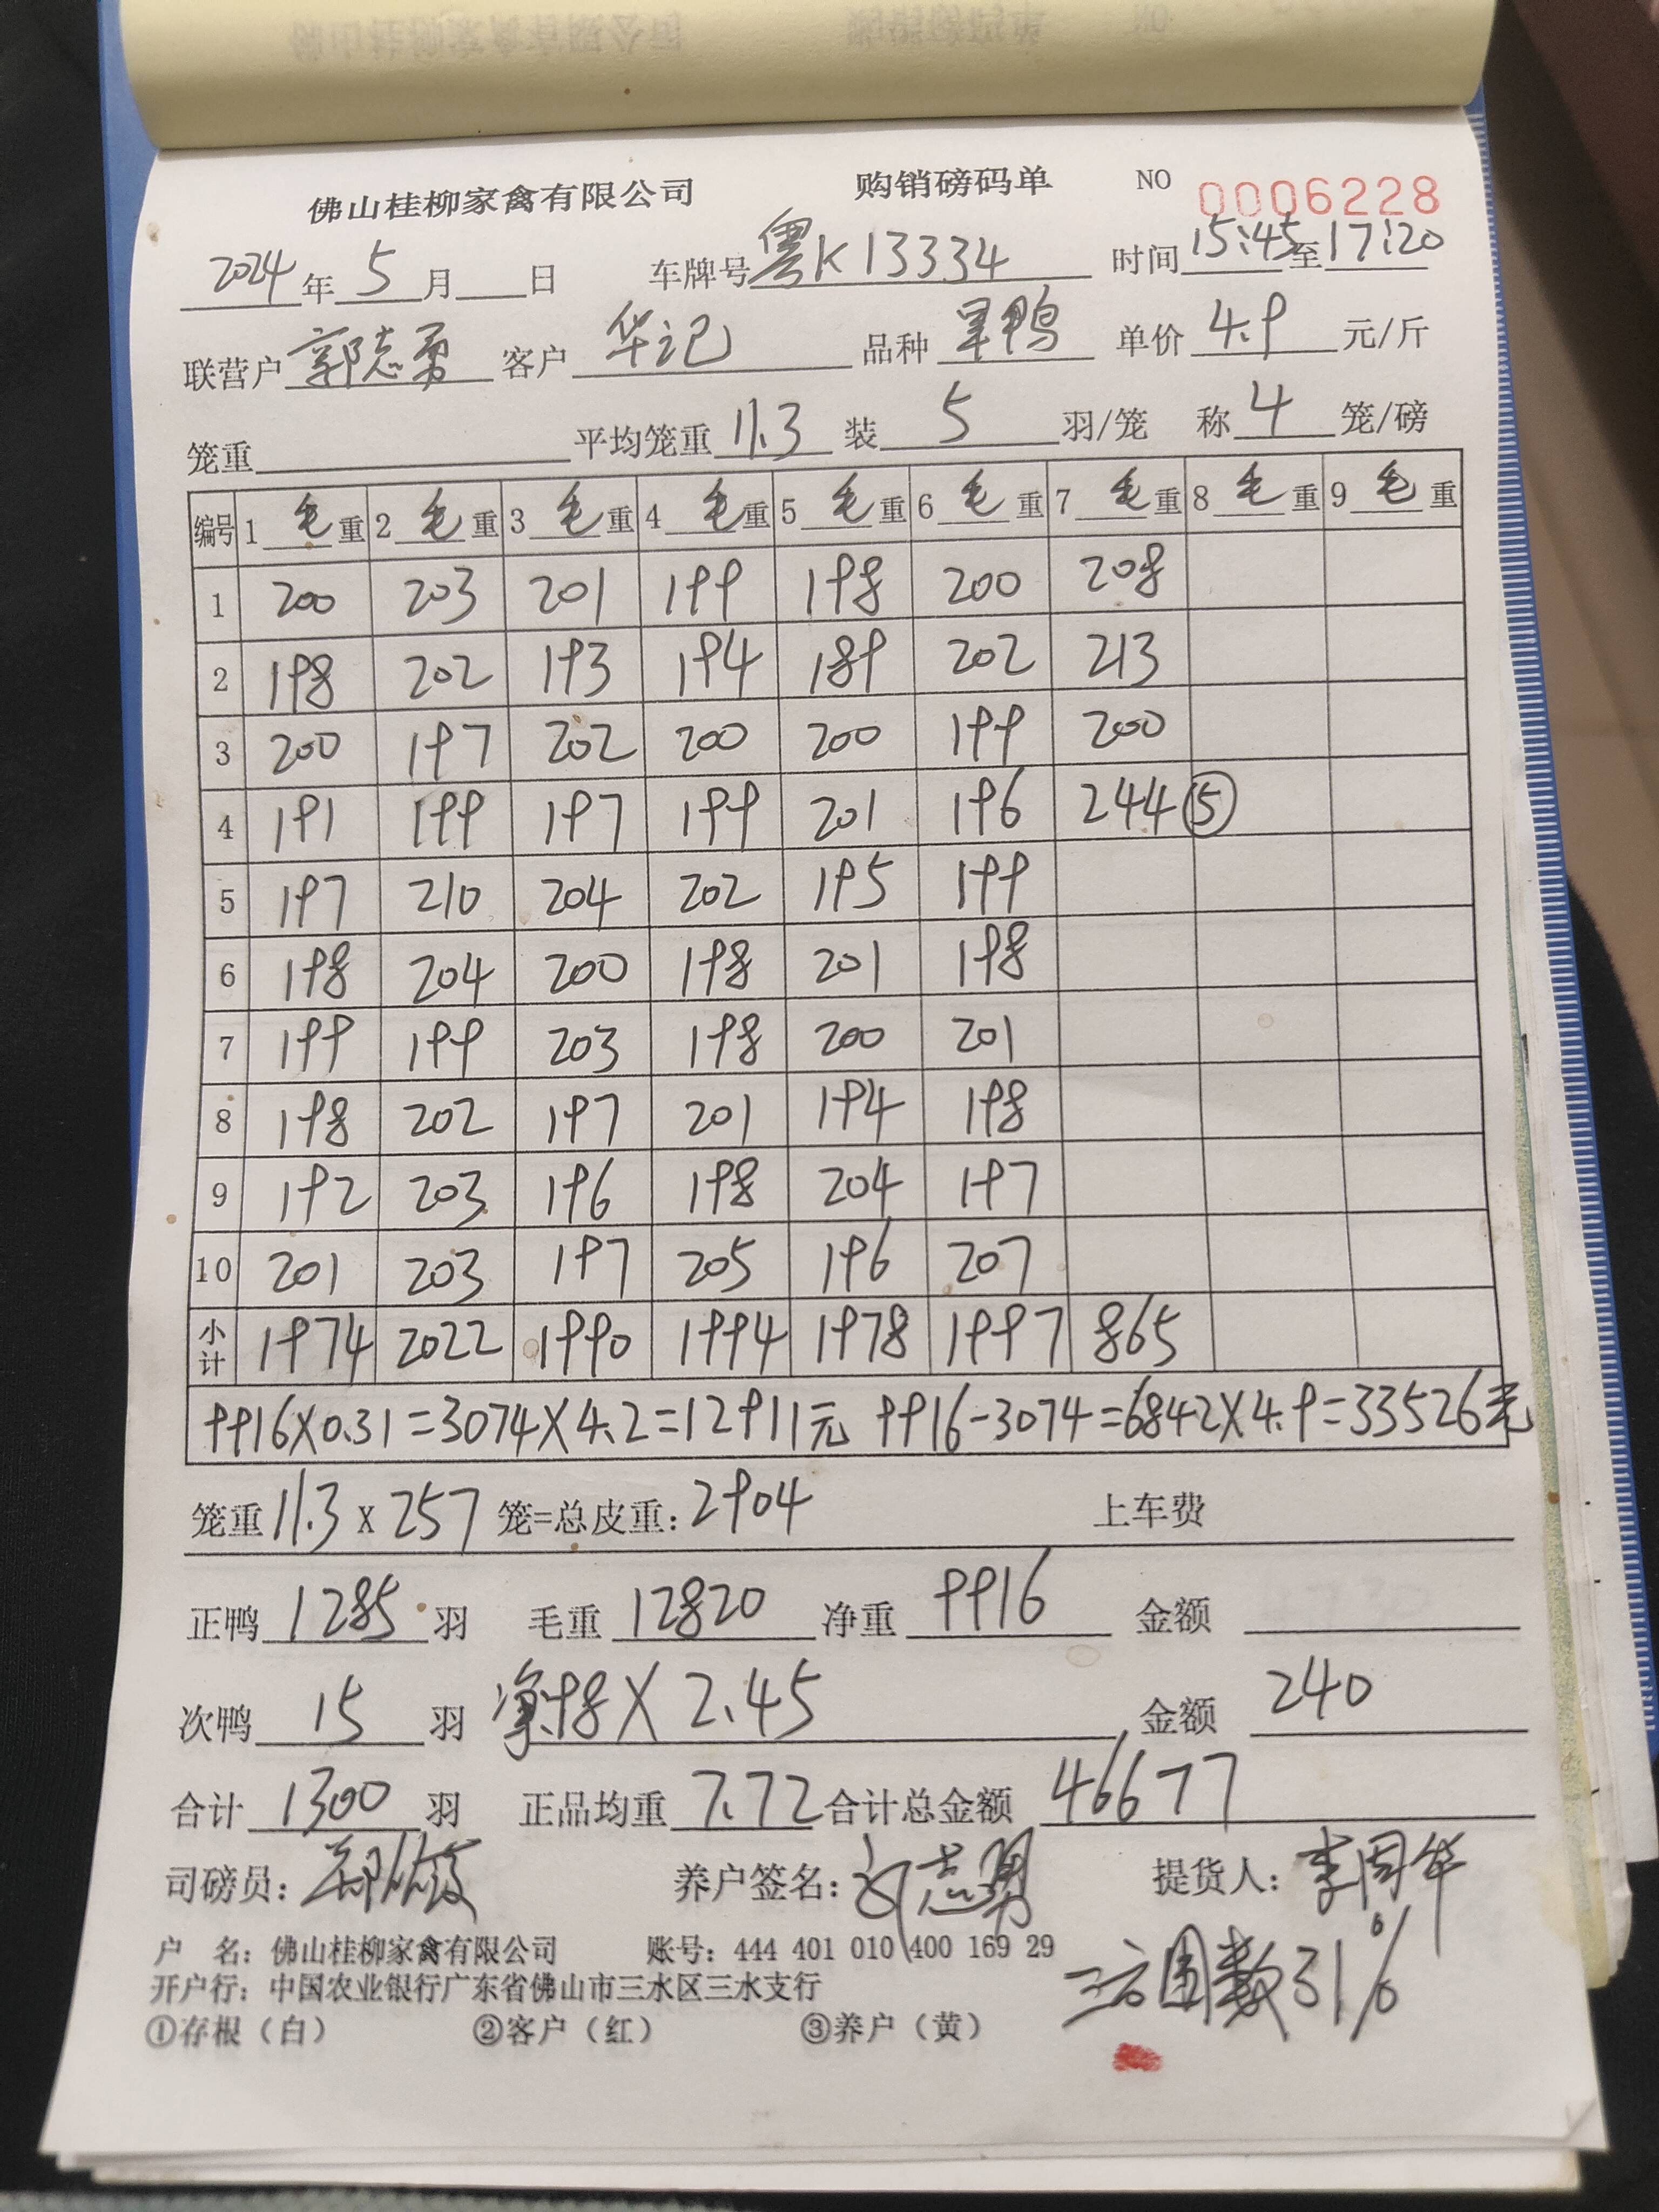 佛山桂柳家禽有限公司 购销磅码单 NO 0006228
2024年5月 日 车牌号粤K13334 时间15:45至17:20
联营户郭志勇 客户 华记 品种 旱鸭 单价 4.9 元/斤
笼重 平均笼重 11.3 装 5 羽/笼 称 4 笼/磅
编号 1 毛重 2 毛重 3 毛重 4 毛重 5 毛重 6 毛重 7 毛重 8 毛重 9 毛重
1 200 203 201 199 198 200 208
2 198 202 193 194 189 202 213
3 200 197 202 200 200 199 200
4 191 199 197 199 201 196 244 ⑤
5 197 210 204 202 195 199
6 198 204 200 198 201 198
7 199 199 203 198 200 201
8 198 202 197 201 194 198
9 192 203 196 198 204 197
10 201 203 197 205 196 207
小计 1974 2022 1990 1994 1978 1997 865
9916X0.31=3074X4.2=12911元 9916-3074=6842X4.9=33526元
笼重11.3 X 257 笼=总皮重:2904 上车费
正鸭 1285 羽 毛重 12820 净重 9916 金额
次鸭 15 羽 净98X2.45 金额 240
合计 1300 羽 正品均重 7.72 合计总金额 46677
司磅员: 养户签名:郭志勇 提货人:李周华
户 名: 佛山桂柳家禽有限公司 账号: 444 401 010 400 169 29
开户行: 中国农业银行广东省佛山市三水区三水支行
①存根(白) ②客户(红) ③养户(黄)
31%